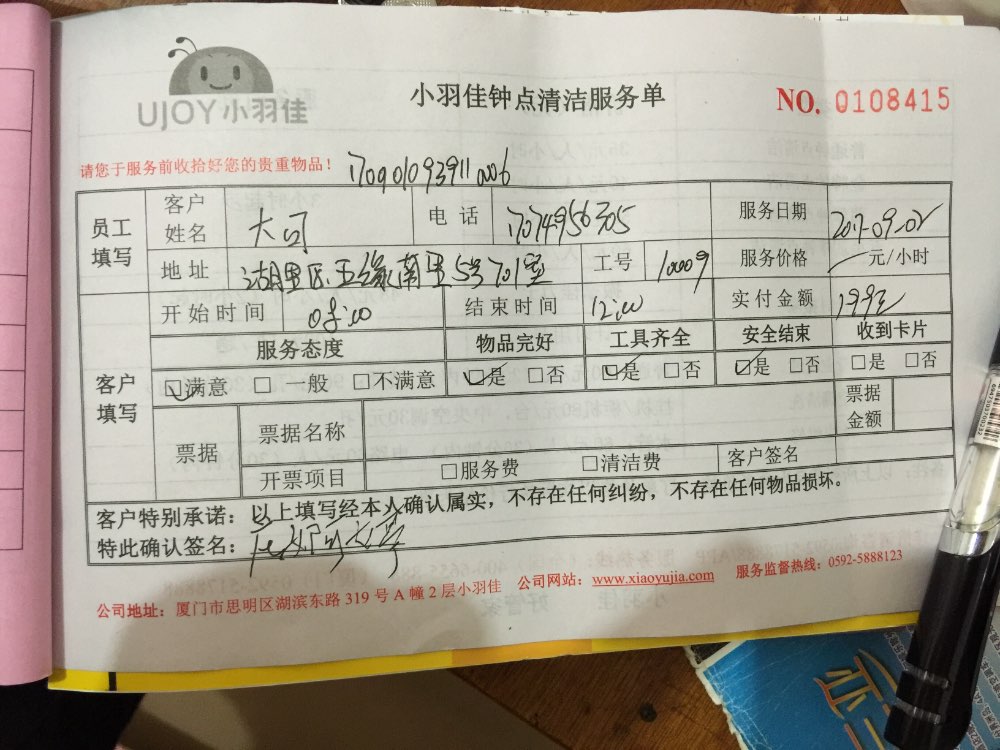 UJOY小羽佳
小羽佳钟点清洁服务单
NO. 0108415
请您于服务前收拾好您的贵重物品！
170901093911006
员工填写 客户姓名 大司 电话 17074956305 服务日期 2017-09-02
地址 湖里区五缘南里5号701室 工号 10009 服务价格 元/小时
客户填写 开始时间 08:00 结束时间 12:00 实付金额 199元
服务态度 物品完好 工具齐全 安全结束 收到卡片
☑满意 □一般 □不满意 ☑是 □否 ☑是 □否 ☑是 □否 □是 □否
票据 票据名称 票据金额
开票项目 □服务费 □清洁费 客户签名
客户特别承诺：以上填写经本人确认属实，不存在任何纠纷，不存在任何物品损坏.
特此确认签名：
公司地址：厦门市思明区湖滨东路 319 号 A 幢 2 层小羽佳 公司网站：www.xiaoyujia.com 服务监督热线：0592-5888123